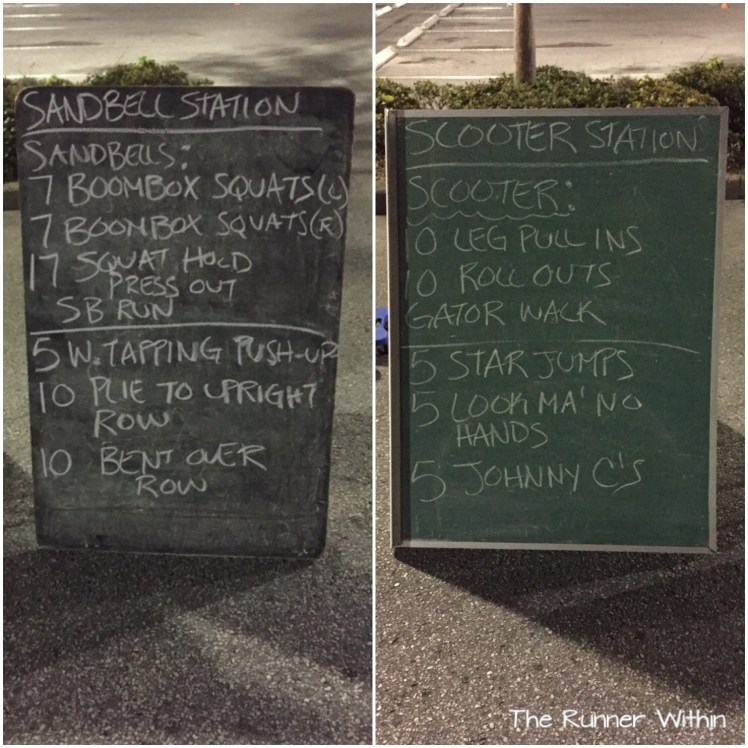 SANDBELL STATION
SANDBELLS:
7 BOOMBOX SQUATS(L)
7 BOOMBOX SQUATS(R)
17 SQUAT HOLD
PRESS OUT
SB RUN
5 W. TAPPING PUSH-UP
10 PLIE TO UPRIGHT
ROW
10 BENT OVER
ROW
SCOOTER STATION
SCOOTER:
10 LEG PULL INS
10 ROLL OUTS
GATOR WALK
5 STAR JUMPS
5 LOOK MA' NO
HANDS
5 JOHNNY C'S
The Runner Within